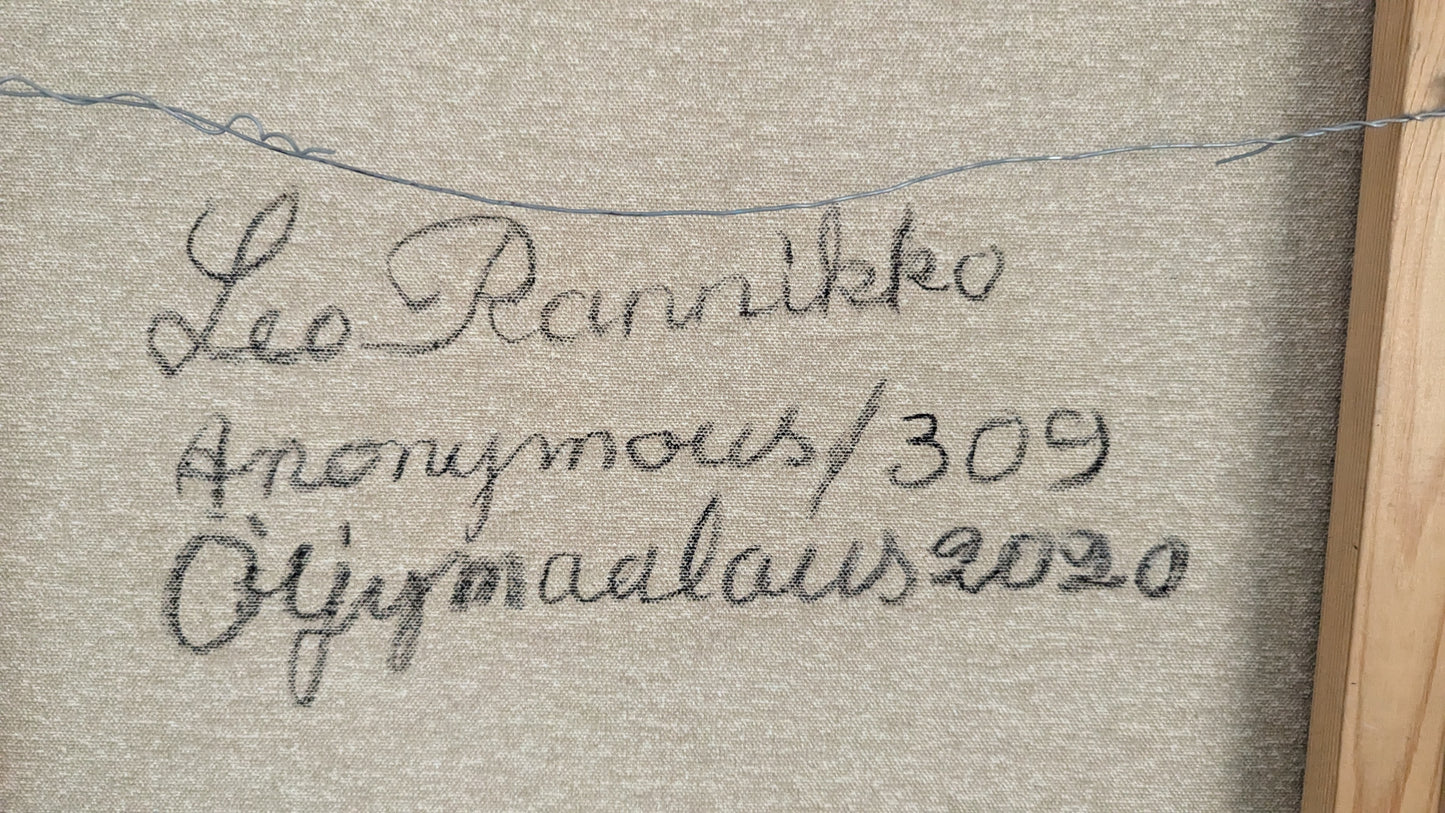 Leo Rannikko
Anonymous/309
Öljymaalaus 2020